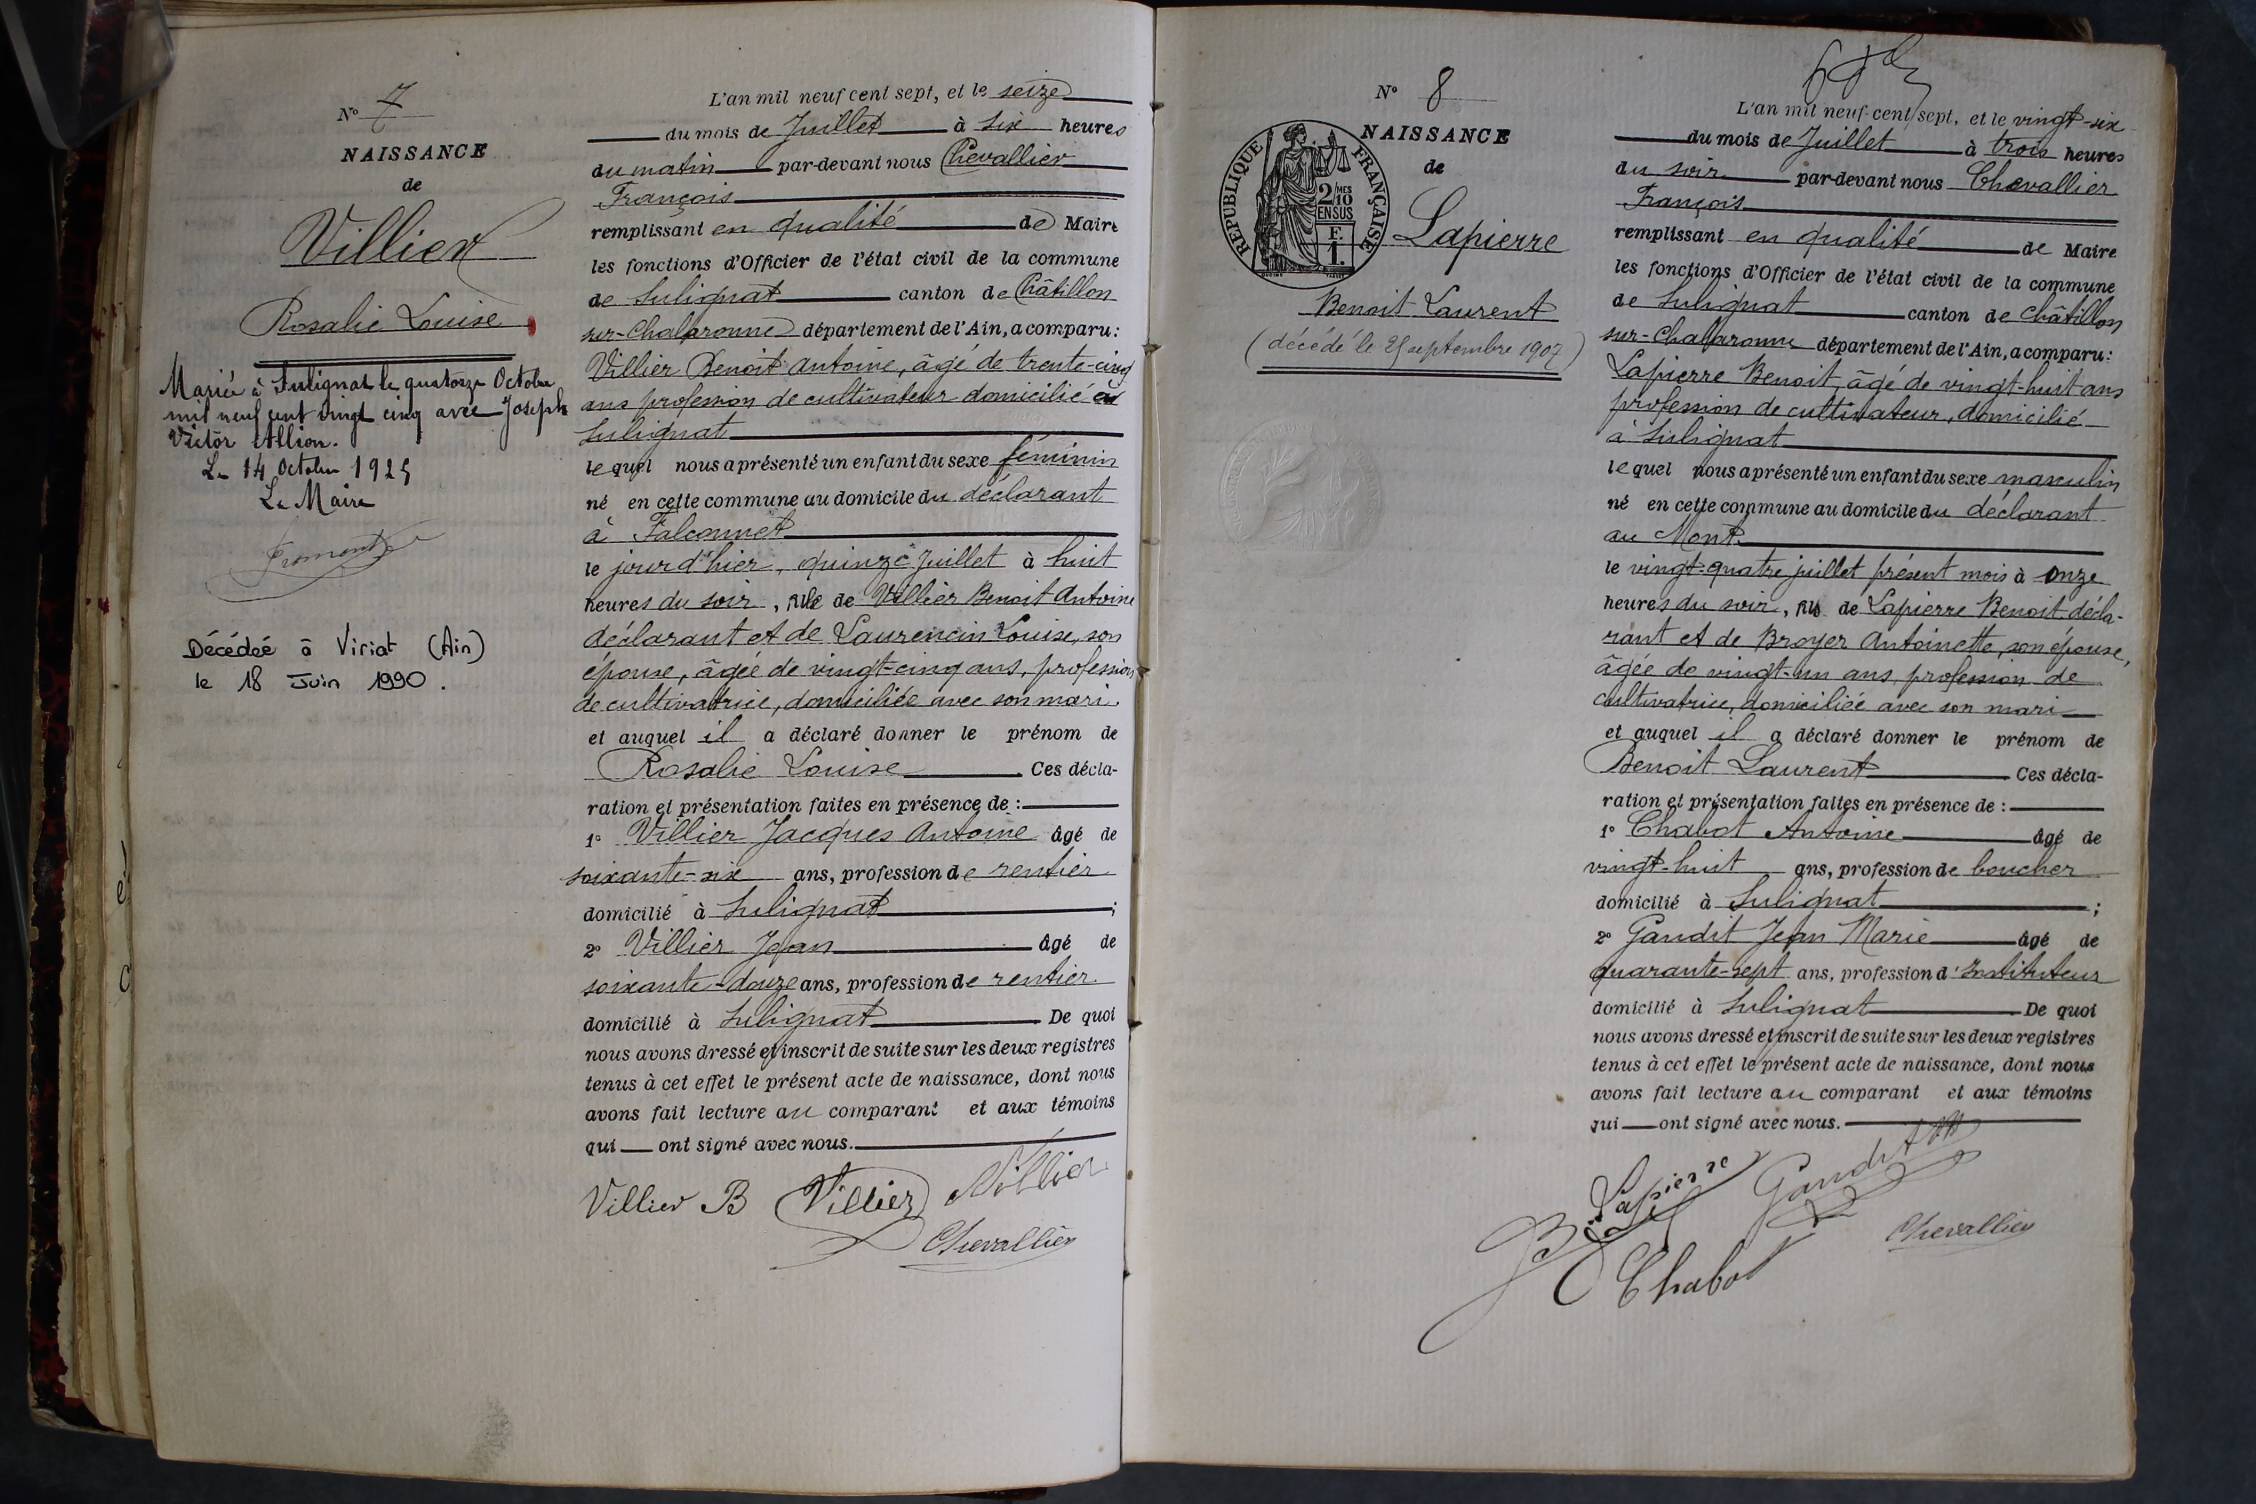 N° 7
NAISSANCE
de
Villier
Rosalie Louise
Mariée à Sulignat le quatorze Octobre
mil neuf cent vingt cinq avec Joseph
Victor Allion.
Le 14 Octobre 1925
Le Maire
Froment
Décédée à Viriat (Ain)
le 18 Juin 1990.
L'an mil neuf cent sept, et le seize
du mois de Juillet à six heures
du matin par-devant nous Chevallier
François
remplissant en qualité de Maire
les fonctions d'Officier de l'état civil de la commune
de Sulignat canton de Châtillon
sur-Chalaronne département de l'Ain, a comparu :
Villier Benoit Antoine, âgé de trente-cinq
ans profession de cultivateur domicilié à
Sulignat
lequel nous a présenté un enfant du sexe féminin
né en cette commune au domicile du déclarant
à Falconnet
le jour d'hier, quinze Juillet à huit
heures du soir, fille de Villier Benoit Antoine
déclarant et de Laurencin Louise, son
épouse, âgée de vingt-cinq ans, profession
de cultivatrice, domiciliée avec son mari.
et auquel il a déclaré donner le prénom de
Rosalie Louise Ces décla-
ration et présentation faites en présence de :
1° Villier Jacques Antoine âgé de
soixante-six ans, profession de rentier
domicilié à Sulignat ;
2° Villier Jean âgé de
soixante-douze ans, profession de rentier.
domicilié à Sulignat De quoi
nous avons dressé et inscrit de suite sur les deux registres
tenus à cet effet le présent acte de naissance, dont nous
avons fait lecture au comparant et aux témoins
qui ont signé avec nous.
Villier B Villier Villier
Chevallier
N° 8
NAISSANCE
de
RÉPUBLIQUE FRANÇAISE
2 MES
/10
EN SUS
F.
1.
Lapierre
Benoit Laurent
(décédé le 25 septembre 1907)
L'an mil neuf cent sept, et le vingt-six
du mois de Juillet à trois heures
du soir par-devant nous Chevallier
François
remplissant en qualité de Maire
les fonctions d'Officier de l'état civil de la commune
de Sulignat canton de Châtillon
sur-Chalaronne département de l'Ain, a comparu :
Lapierre Benoit, âgé de vingt-huit ans
profession de cultivateur, domicilié
à Sulignat
lequel nous a présenté un enfant du sexe masculin
né en cette commune au domicile du déclarant
au Mont.
le vingt-quatre juillet présent mois à onze
heures du soir, fils de Lapierre Benoit décla-
rant et de Broyer Antoinette, son épouse,
âgée de vingt-un ans, profession de
cultivatrice, domiciliée avec son mari
et auquel il a déclaré donner le prénom de
Benoit Laurent Ces décla-
ration et présentation faites en présence de :
1° Chabot Antoine âgé de
vingt-huit ans, profession de boucher
domicilié à Sulignat ;
2° Gaudit Jean Marie âgé de
quarante-sept ans, profession d'Instituteur
domicilié à Sulignat De quoi
nous avons dressé et inscrit de suite sur les deux registres
tenus à cet effet le présent acte de naissance, dont nous
avons fait lecture au comparant et aux témoins
qui ont signé avec nous.
Lapierre Gaudit JM
B Chevallier
Chabot